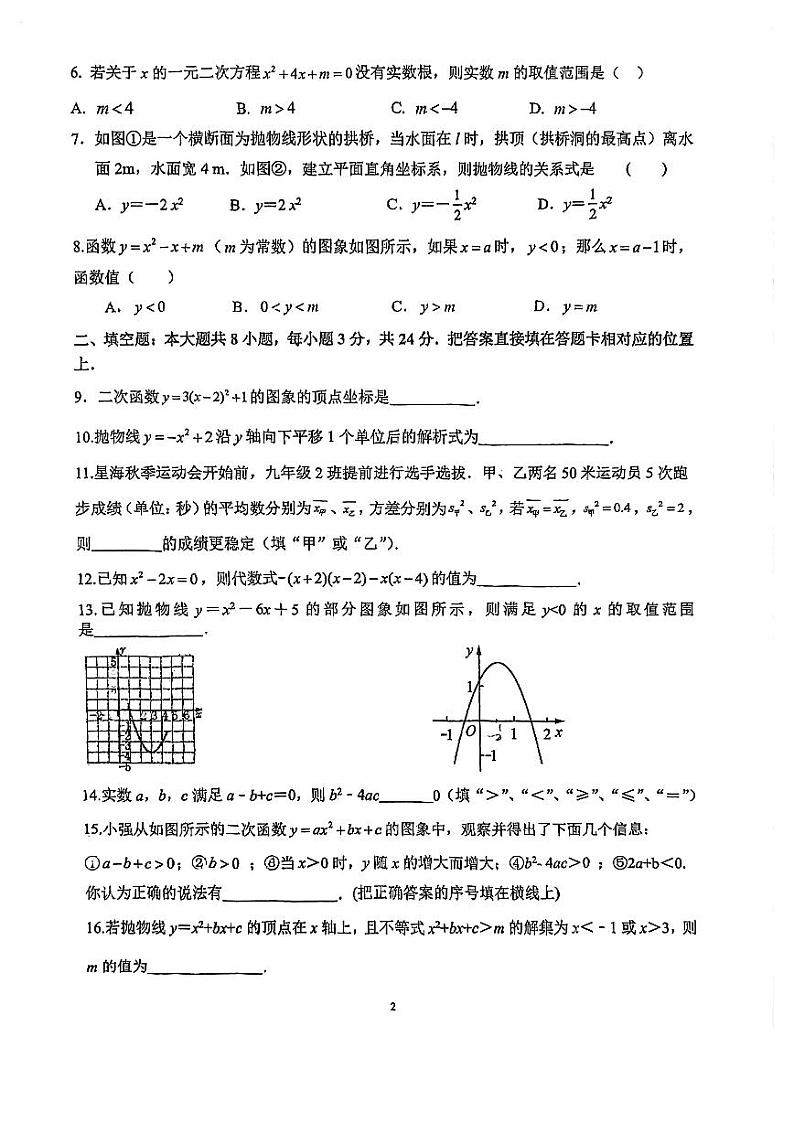 6. 若关于 x 的一元二次方程 x²+4x+m=0 没有实数根，则实数 m 的取值范围是（ ）
A. m<4 B. m>4 C. m<-4 D. m>-4
7．如图①是一个横断面为抛物线形状的拱桥，当水面在 l 时，拱顶（拱桥洞的最高点）离水
面 2m，水面宽 4 m．如图②，建立平面直角坐标系，则抛物线的关系式是 ( )
A．y=－2 x² B．y=2 x² C．y=－1/2x² D．y=1/2x²
8.函数 y=x²-x+m（m 为常数）的图象如图所示，如果 x=a 时，y<0；那么 x=a-1 时，
函数值（ ）
A．y<0 B．0<y<m C．y>m D．y=m
二、填空题：本大题共 8 小题，每小题 3 分，共 24 分．把答案直接填在答题卡相对应的位置
上．
9．二次函数 y=3(x-2)²+1 的图象的顶点坐标是__________．
10.抛物线 y=-x²+2 沿 y 轴向下平移 1 个单位后的解析式为________________．
11.星海秋季运动会开始前，九年级 2 班提前进行选手选拔．甲、乙两名 50 米运动员 5 次跑
步成绩（单位：秒）的平均数分别为 x̄甲、x̄乙，方差分别为 s甲²、s乙²，若 x̄甲=x̄乙，s甲²=0.4，s乙²=2，
则________的成绩更稳定（填“甲”或“乙”）.
12.已知 x²-2x=0，则代数式-(x+2)(x-2)-x(x-4) 的值为____________．
13.已知抛物线 y=x²－6x＋5 的部分图象如图所示，则满足 y<0 的 x 的取值范围
是______________．
y
5
-2 1 1 2 3 4 5 6
-2
-3
-4
y
1
-1 O 1/2 1 2 x
-1
14.实数 a，b，c 满足 a﹣b+c=0，则 b²﹣4ac______0（填“>”、“<”、“≥”、“≤”、“=”）
15.小强从如图所示的二次函数 y=ax²+bx+c 的图象中，观察并得出了下面几个信息：
①a-b+c>0；②b>0 ；③当 x>0 时，y 随 x 的增大而增大；④b²- 4ac>0 ；⑤2a+b<0.
你认为正确的说法有______________．(把正确答案的序号填在横线上)
16.若抛物线 y=x²+bx+c 的顶点在 x 轴上，且不等式 x²+bx+c>m 的解集为 x<﹣1 或 x>3，则
m 的值为______________．
2